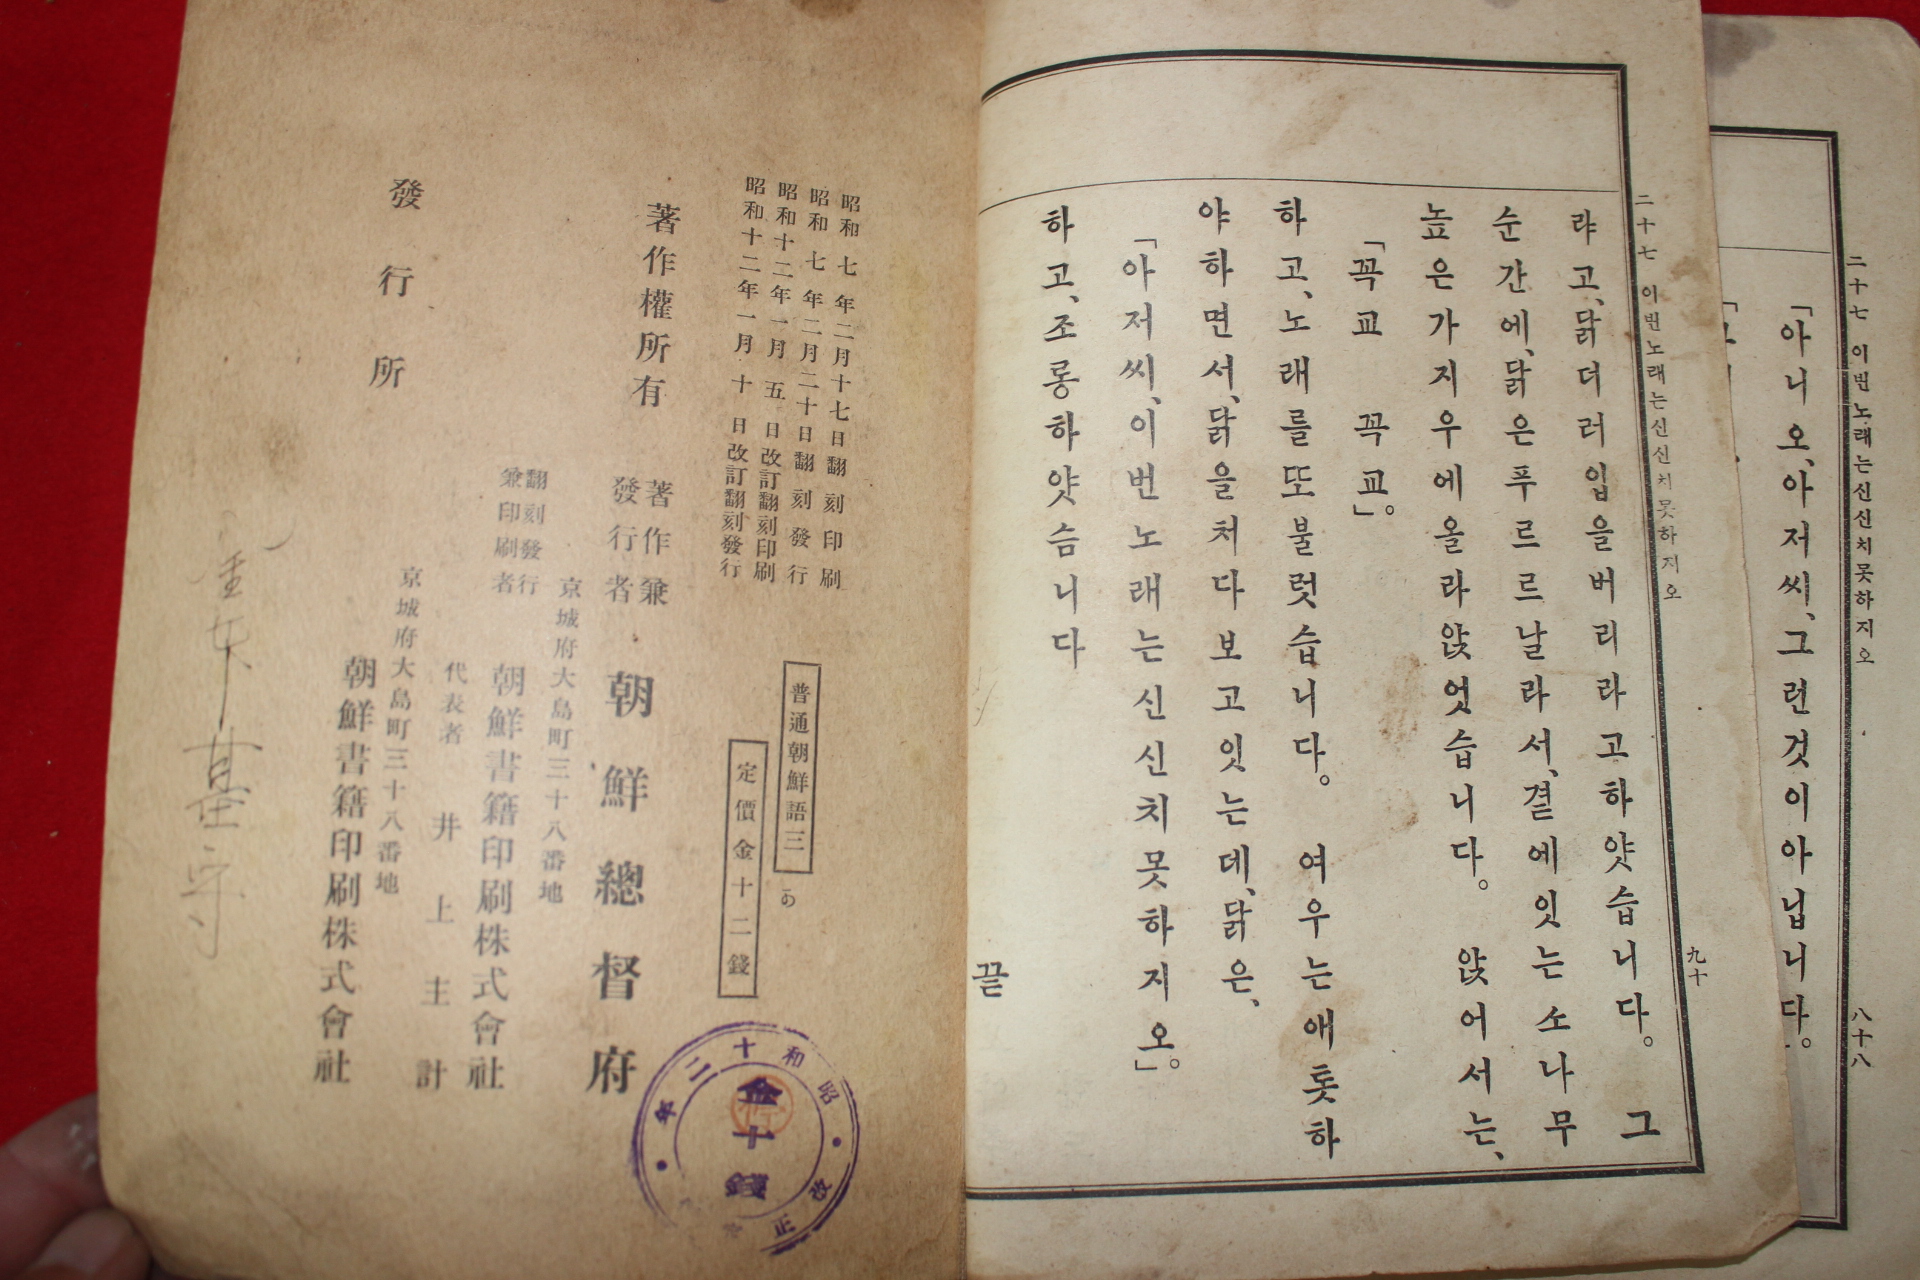 二十七 이번노래는신신치못하지오
八十八
「아니오、아저씨、그런것이아닙니다。
二十七 이번노래는신신치못하지오
九十
랴고、닭더러입을버리라고하얏습니다。 그
순간에、닭은푸르르날라서、곁에잇는소나무
높은가지우에올라앉엇습니다。 앉어서는、
「꼭교 꼭교」。
하고、노래를또불럿습니다。 여우는애톳하
야하면서、닭을처다보고잇는데、닭은、
「아저씨、이번노래는신신치못하지오」。
하고、조롱하얏슴니다
끝
昭和七年二月十七日翻刻印刷
昭和七年二月二十日翻刻發行
昭和十二年一月五日改訂翻刻印刷
昭和十二年一月十日改訂翻刻發行
普通朝鮮語三
定價金十二錢
著作權所有
著作兼
發行者
朝鮮總督府
京城府大島町三十八番地
翻刻發行
兼印刷者
朝鮮書籍印刷株式會社
代表者 井上主計
京城府大島町三十八番地
發行所
朝鮮書籍印刷株式會社
昭和十二年
改正
金十錢